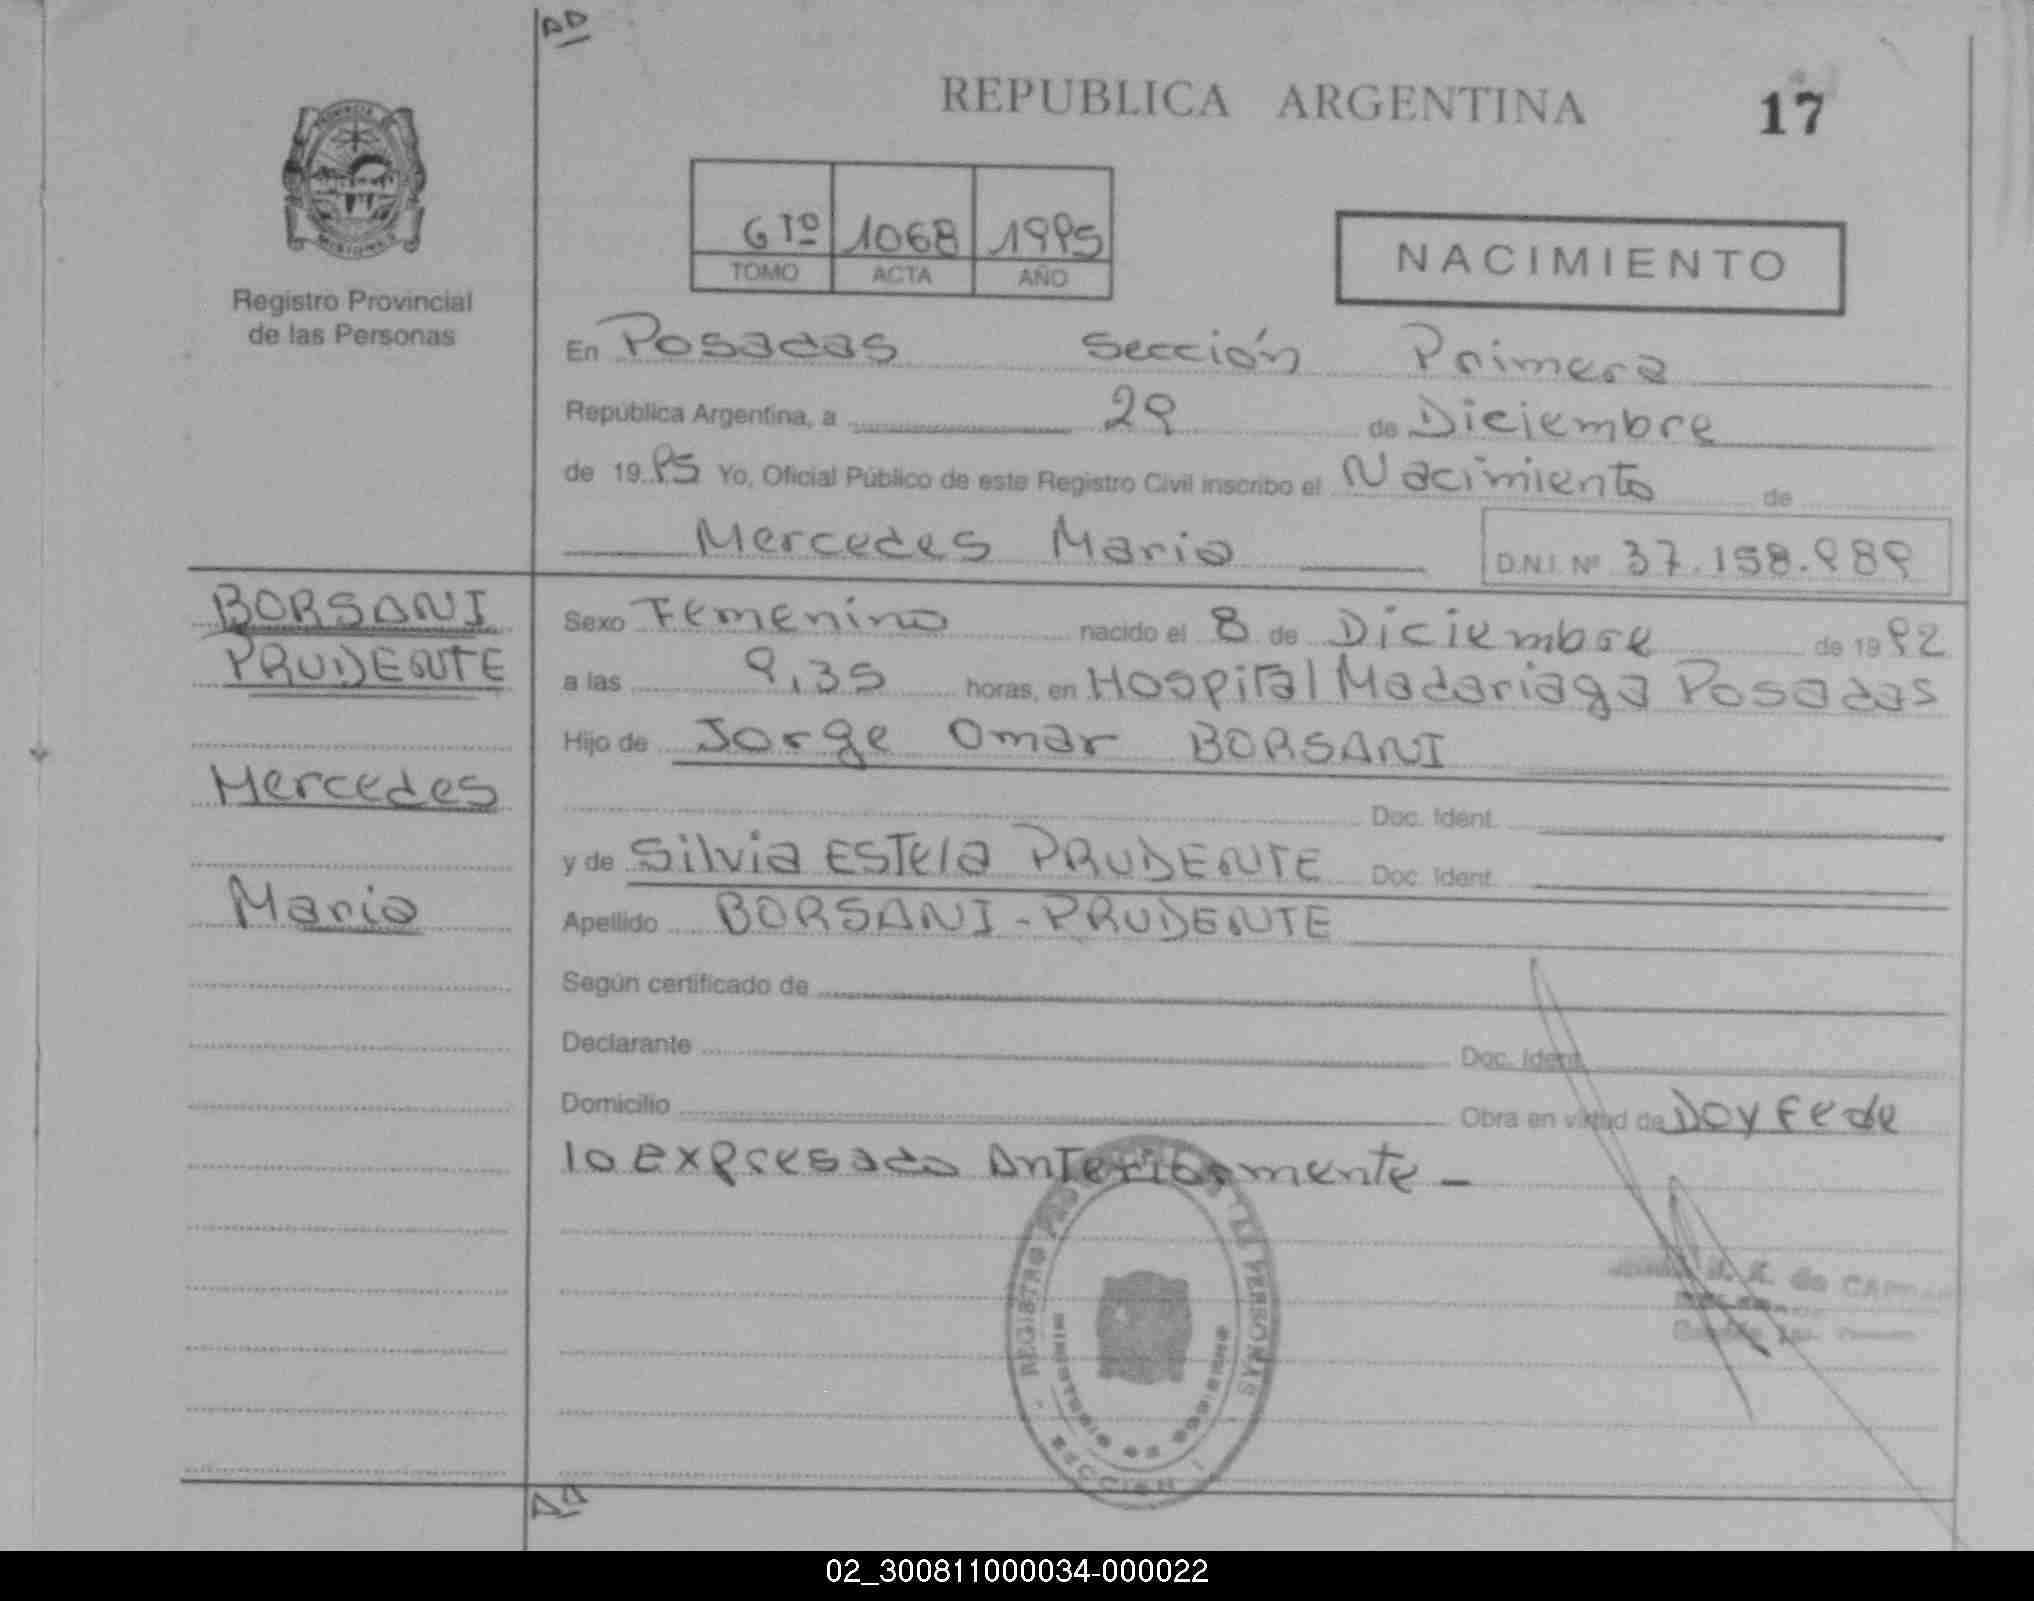 REPUBLICA ARGENTINA
17
6 Tº 1068 1995
TOMO ACTA AÑO
NACIMIENTO
Registro Provincial
de las Personas
En Posadas Sección Primera
República Argentina, a 29 de Diciembre
de 19 95 Yo, Oficial Público de este Registro Civil inscribo el Nacimiento de
Mercedes Maria D.N.I. Nº 37.158.989
BORSANI
PRUDENTE
Mercedes
Maria
Sexo Femenino nacido el 8 de Diciembre de 19 92
a las 9,35 horas, en Hospital Madariaga Posadas
Hijo de Jorge Omar BORSANI
Doc. Ident.
y de Silvia Estela PRUDENTE Doc. Ident.
Apellido BORSANI - PRUDENTE
Según certificado de
Declarante Doc. Ident.
Domicilio Obra en virtud de Doy Fe de
lo expresado Anteriormente -
REGISTRO DE LAS PERSONAS
MINISTERIO DE GOBIERNO
SECCION
de
02_300811000034-000022